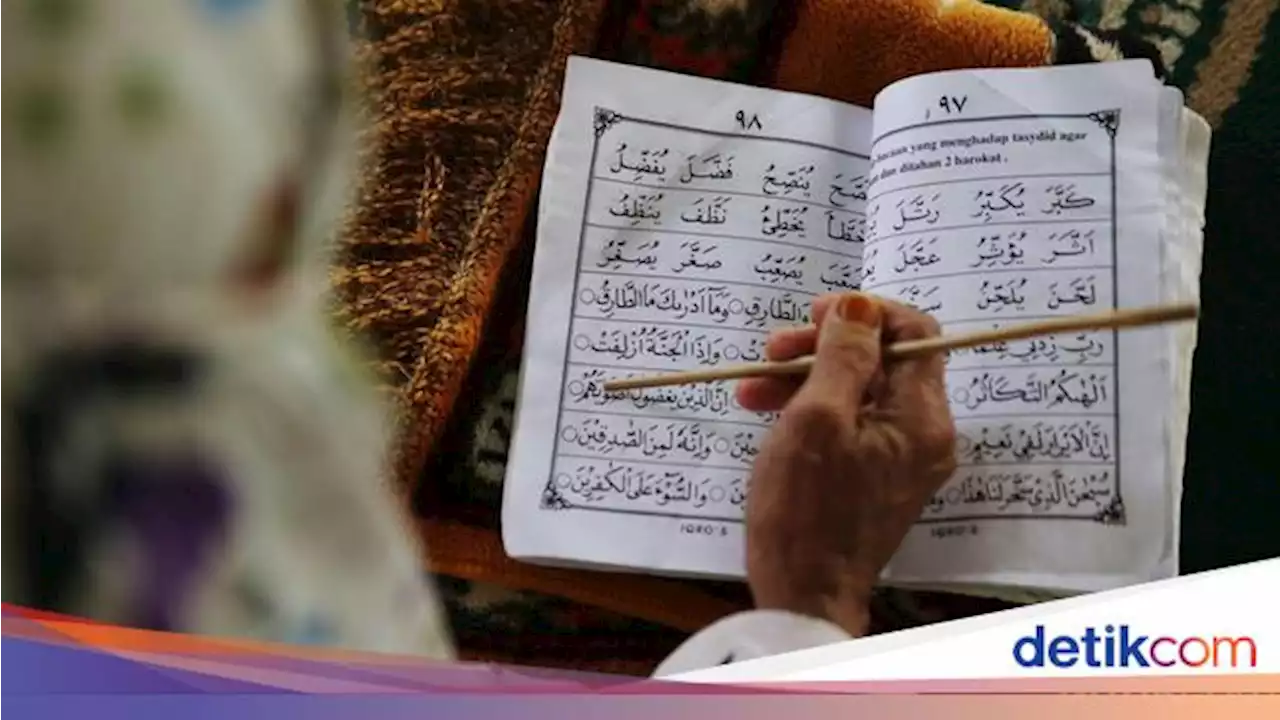 ٩٧
yang menghadap tasydid agar
dan ditahan 2 harokat .
كَبَّرَ يُكَبِّرُ رَتَّلَ
اَثَّرَ يُؤَثِّرُ عَجَّلَ
لَحَّنَ يُلَحِّنُ
رَبِّ زِدْنِي عِلْمًا
اَلْهٰىكُمُ التَّكَاثُرُ
اِنَّ الْاَبْرَارَ لَفِيْ نَعِيْمٍ
سُبْحٰنَ الَّذِيْ سَخَّرَ لَنَا هٰذَا
IQRO'5
٩٨
يُنَصِّحُ فَضَّلَ يُفَضِّلُ
خَطَّأَ يُخَطِّئُ نَظَّفَ يُنَظِّفُ
يُصَعِّبُ صَغَّرَ يُصَغِّرُ
وَالطَّارِقِ وَمَآ اَدْرٰىكَ مَا الطَّارِقُ
وَاِذَا الْجَنَّةُ اُزْلِفَتْ
اِنَّ الَّذِيْنَ يَغُضُّوْنَ اَصْوَاتَهُمْ
وَاِنَّهٗ لَمِنَ الصّٰدِقِيْنَ
وَالسُّوْٓءَ عَلَى الْكٰفِرِيْنَ
IQRO'5
detikcom